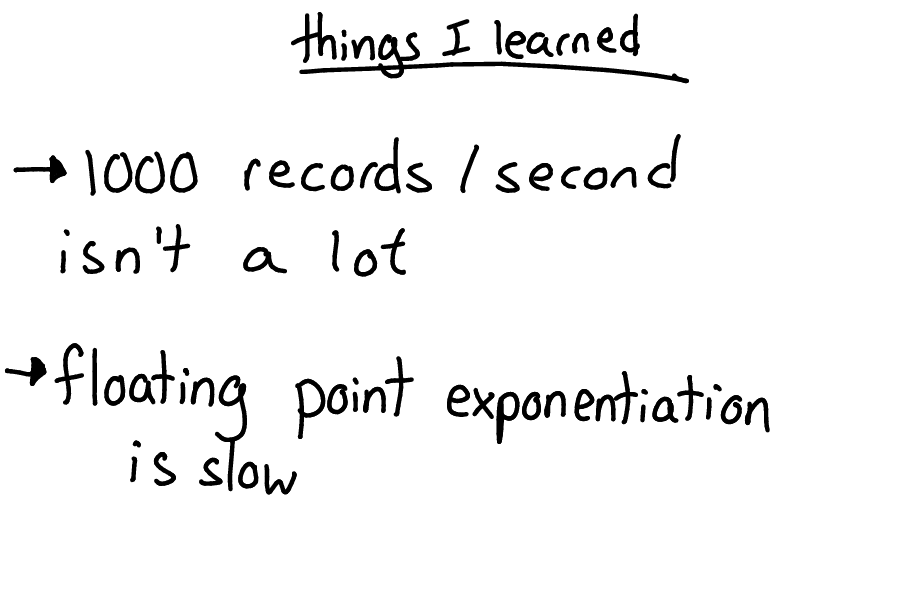 things I learned
→ 1000 records / second
isn't a lot
→ floating point exponentiation
is slow